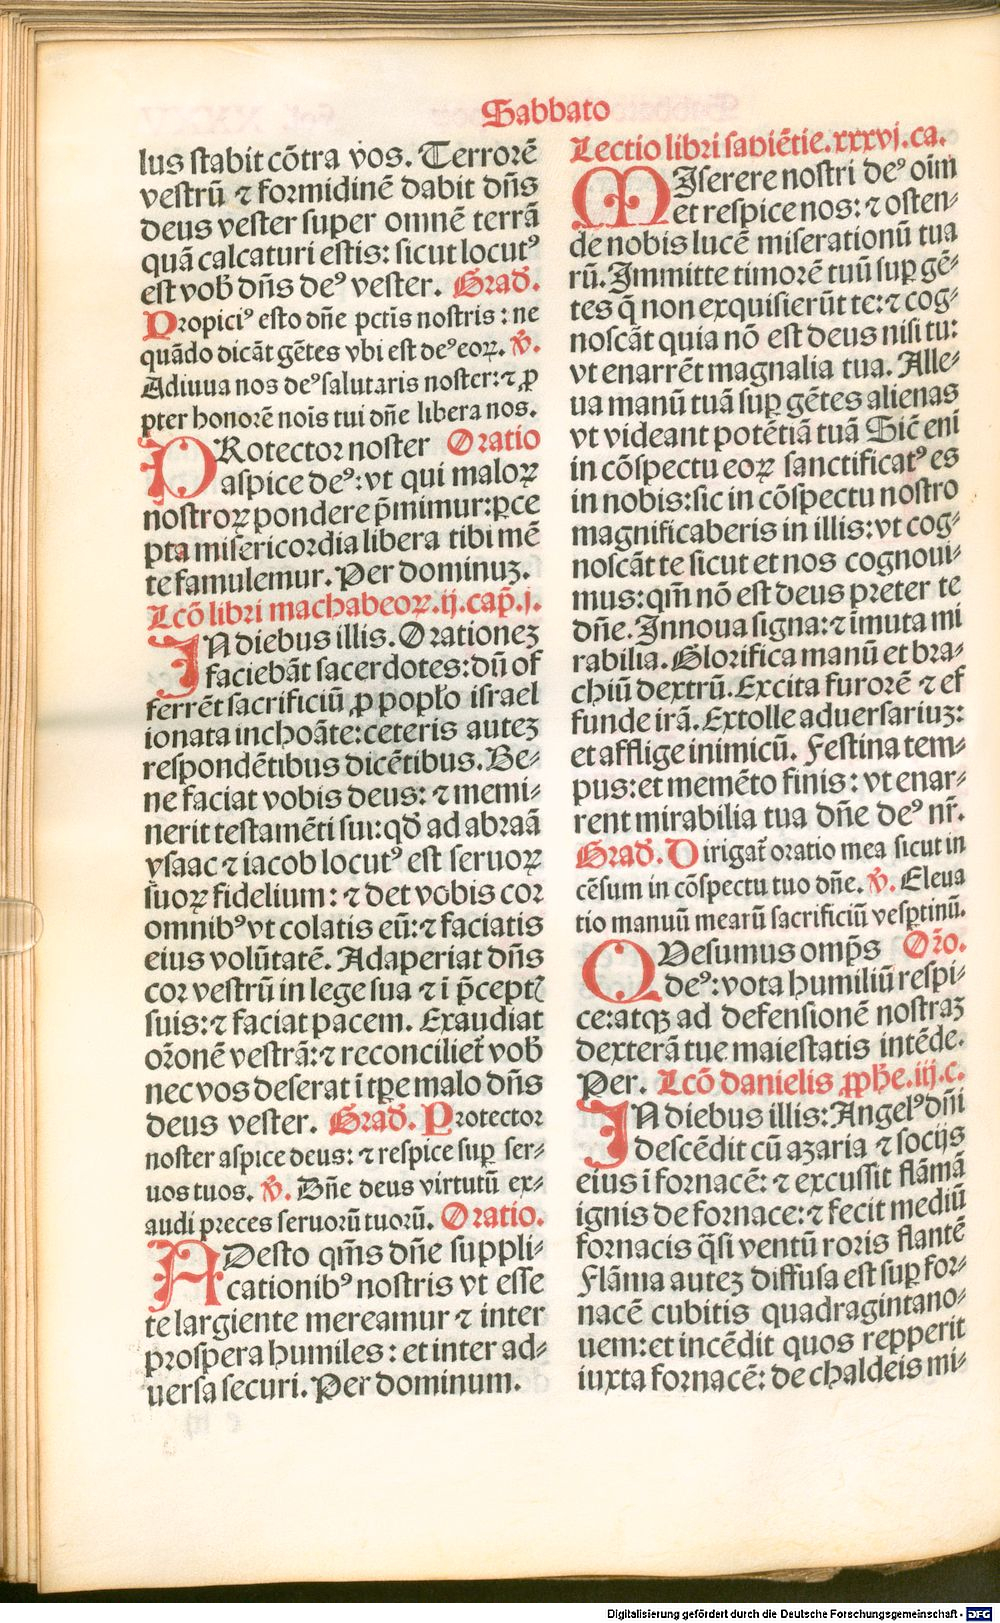 Sabbato
lus stabit cōtra vos. Terrorē
vestrū ⁊ formidinē dabit dn̄s
deus vester super omnē terrā
quā calcaturi estis: sicut locutꝰ
est vob̄ dn̄s deꝰ vester. Grad̄.
Propiciꝰ esto dn̄e pctīs nostris: ne
quādo dicāt gētes vbi est deꝰ eoꝝ. V̄.
Adiuua nos deꝰ salutaris noster: ⁊ ꝓ
pter honorē noīs tui dn̄e libera nos.
PRotector noster Oratio
aspice deꝰ: vt qui maloꝝ
nostroꝝ pondere p̄mimur: ꝑce
pta misericordia libera tibi mē
te famulemur. Per dominuꝫ.
Lcō libri machabeoꝝ. ij. cap̄. j.
IN diebus illis. Orationeꝫ
faciebāt sacerdotes: dū of
ferrēt sacrificiū ꝓ popło israel
ionata inchoāte: ceteris auteꝫ
respondētibus dicētibus. Be⸗
ne faciat vobis deus: ⁊ memi⸗
nerit testamēti sui: qd̄ ad abraā
ysaac ⁊ iacob locutꝰ est seruoꝝ
suoꝝ fidelium: ⁊ det vobis cor
omnibꝰ vt colatis eū: ⁊ faciatis
eius volūtatē. Adaperiat dn̄s
cor vestrū in lege sua ⁊ ī p̄ceptꝭ
suis: ⁊ faciat pacem. Exaudiat
or̄onē vestrā: ⁊ reconciliet̄ vob̄
nec vos deserat ī tꝑe malo dn̄s
deus vester. Grad̄. Protector
noster aspice deus: ⁊ respice suꝑ ser⸗
uos tuos. V̄. Dn̄e deus virtutū ex⸗
audi preces seruorū tuorū. Oratio.
ADesto qm̄s dn̄e suppli⸗
cationibꝰ nostris vt esse
te largiente mereamur ⁊ inter
prospera humiles: et inter ad⸗
uersa securi. Per dominum.
Lectio libri sapiētie. xxxvj. ca.
MIserere nostri deꝰ oīm
et respice nos: ⁊ osten⸗
de nobis lucē miserationū tua
rū. Immitte timorē tuū suꝑ gē⸗
tes q̄ non exquisierūt te: ⁊ cog⸗
noscāt quia nō est deus nisi tu:
vt enarrēt magnalia tua. Alle⸗
ua manū tuā suꝑ gētes alienas
vt videant potētiā tuā Sic̄ eni
in cōspectu eoꝝ sanctificatꝰ es
in nobis: sic in cōspectu nostro
magnificaberis in illis: vt cog⸗
noscāt te sicut et nos cognoui⸗
mus: qm̄ nō est deus preter te
dn̄e. Innoua signa: ⁊ īmuta mi
rabilia. Glorifica manū et bra⸗
chiū dextrū. Excita furorē ⁊ ef
funde irā. Extolle aduersariuꝫ:
et afflige inimicū. Festina tem⸗
pus: et memēto finis: vt enar⸗
rent mirabilia tua dn̄e deꝰ nr̄.
Grad̄. Dirigat̄ oratio mea sicut in
cēsum in cōspectu tuo dn̄e. V̄. Eleua
tio manuū mearū sacrificiū vesꝑtinū.
QVesumus omp̄s Or̄o.
deꝰ: vota humiliū respi⸗
ce: atqꝫ ad defensionē nostraꝫ
dexterā tue maiestatis intēde.
Per. Lcō danielis ꝓph̄e. iij. c.
IN diebus illis: Angelꝰ dn̄i
descēdit cū azaria ⁊ socijs
eius ī fornacē: ⁊ excussit flāmā
ignis de fornace: ⁊ fecit mediū
fornacis q̄si ventū roris flantē
Flāma auteꝫ diffusa est suꝑ for⸗
nacē cubitis quadraginta no⸗
uem: et incēdit quos repperit
iuxta fornacē: de chaldeis mi⸗
Digitalisierung gefördert durch die Deutsche Forschungsgemeinschaft - DFG